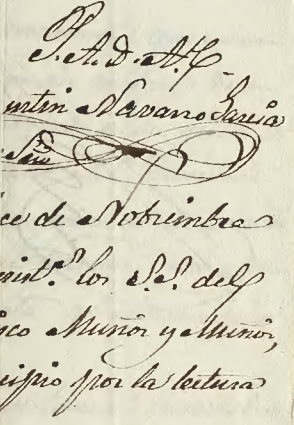 P.A.D.A.Y.
Martin Navarro Garcia
Srio
ce de Nobiembre
nist.º los S.S. del
sco Muñoz y Muñoz,
cipio por la lectura